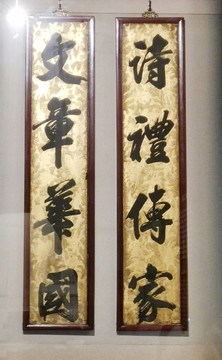 詩禮傳家
文章華國